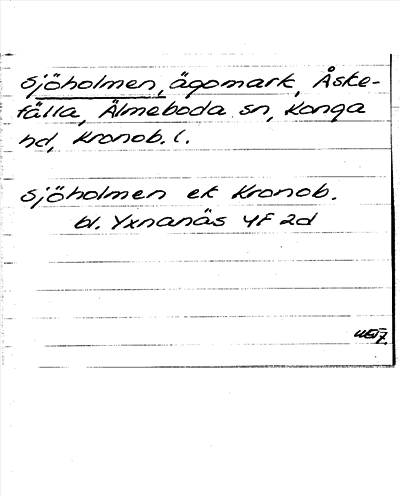 Sjöholmen, ägomark, Åske-
fälla, Älmeboda sn, Konga
hd, Kronob. l.
Sjöholmen ek Kronob.
bl. Yxnanäs 4F 2d